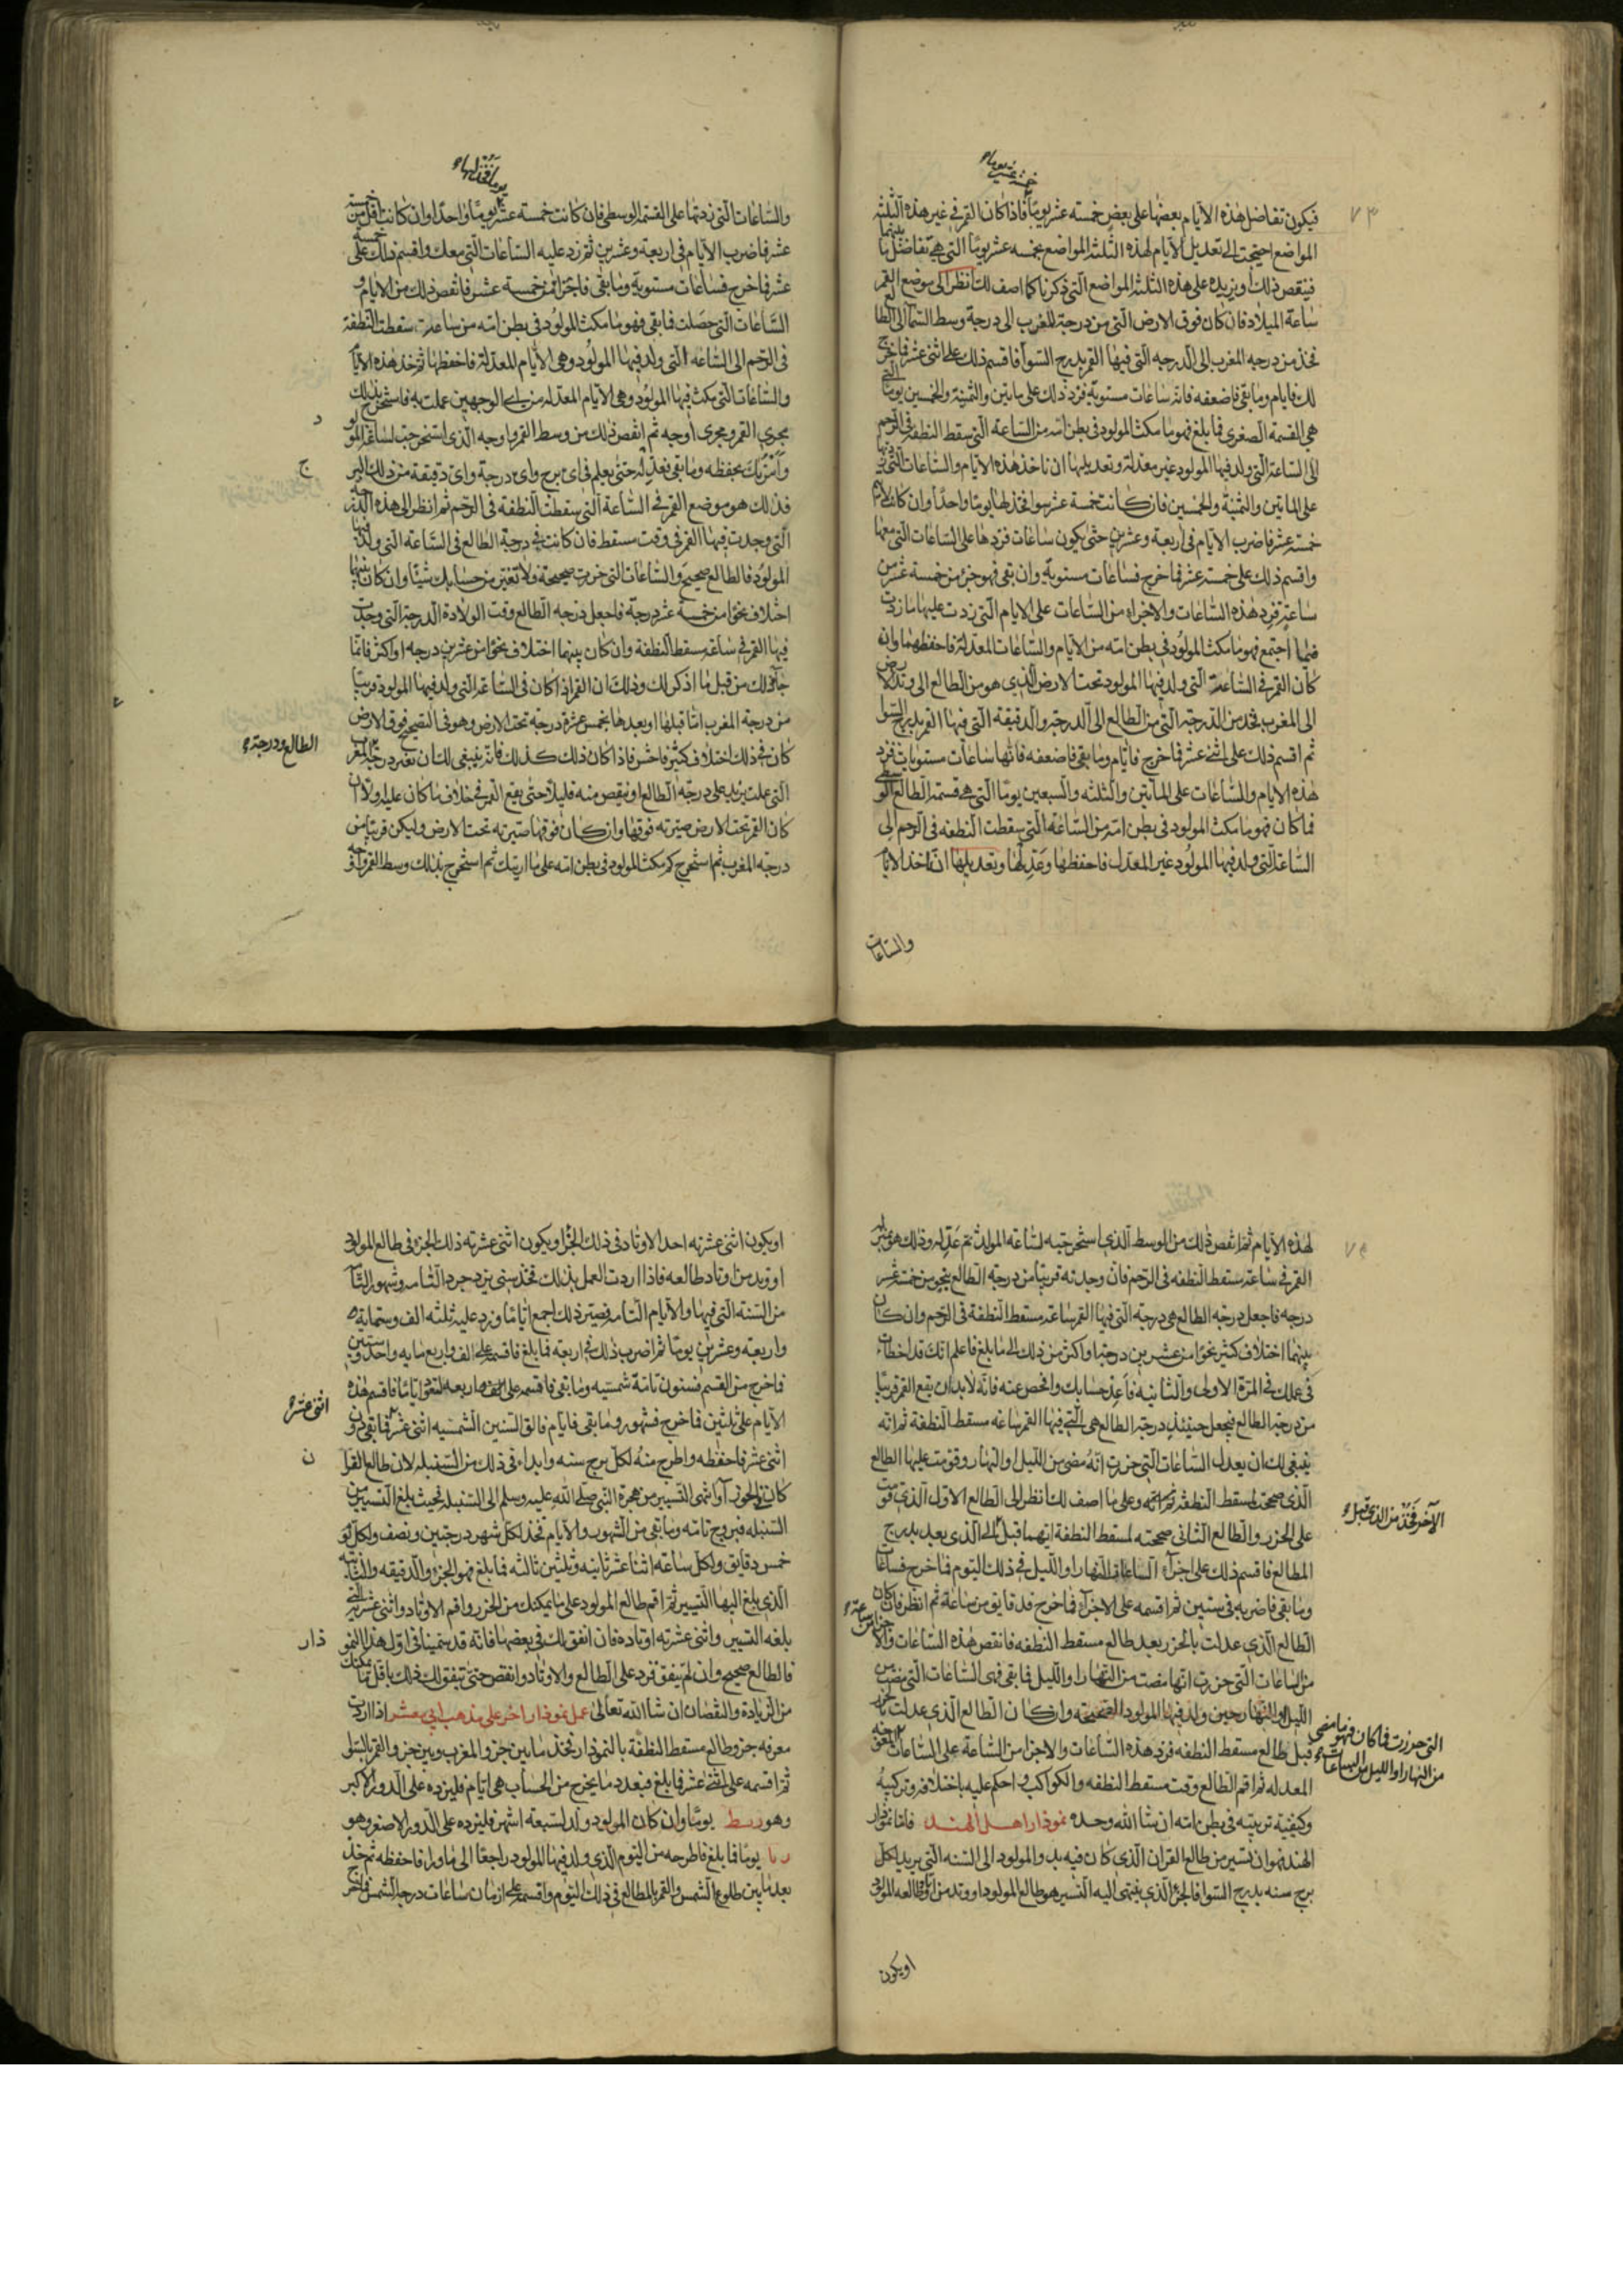 فيكون تفاضل هذه الايام بعضها على بعض خمسة عشر يوما فاذا كان القمر في غير هذه الثلثة
المواضع احتيجت الى تعديل الايام لهذه الثلثة المواضع بخمسه عشر يومًا التي هي تفاضل ما بينها
فينقص ذلك او يزيده على هذه الثلثة المواضع التي ذكرنا كما اصف لك انظر الى موضع القمر
ساعة الميلاد فان كان فوق الارض التي من درجة المغرب الى درجة وسط السما الى الطالع
فخذ من درجه المغرب الى الدرجه التي فيها القمر بدرج السوا فاقسم ذلك على اثنى عشر فما خرج
لك فايام وما بقى فاضعفه فانه ساعات مستوية فزد ذلك على مايتين والثمنية والخمسين يوما التي
هي القسمة الصغرى فما بلغ فهو ما مكث المولود في بطن امه من الساعة التي سقط النطفه في الرحم
الى الساعة التي ولد فيها المولود غير معدلة وتعديلها ان تاخذ هذه الايام والساعات التي زدتها
على المايتين والثمنية والخمسين فان كانت خمسة عشر سوا فخذ لها يومًا واحدًا وان كانت اقل من
خمسة عشر فاضرب الايام في اربعة وعشرين حتى يكون ساعات فزدها على الساعات التي معها
واقسم ذلك على خمسة عشر فما خرج فساعات مستوية وان بقى فهو جزء من خمسة عشر من
ساعة فزد هذه الساعات والاجزاء من الساعات على الايام التي زدت عليها ما زدت
فما اجتمع فهو ما مكث المولود في بطن امه من الايام والساعات المعدلة فاحفظهما وان
كان القمر في الساعة التي ولد فيها المولود تحت الارض الذي هو من الطالع الى وتد الارض
الى المغرب فخذ من الدرجة التي من الطالع الى الدرجة والدقيقه التي فيها القمر بدرج السوا
ثم اقسم ذلك على اثنى عشر فما خرج فايام وما بقى فاضعفه فانها ساعات مستويات فزد
هذه الايام والساعات على المايتين والثلثه والسبعين يومًا التي هي قسمة الطالع الوسطى
فما كان فهو ما مكث المولود في بطن امه من الساعة التي سقطت النطفه في الرحم الى
الساعة التي ولد فيها المولود غير المعدل فاحفظها وعدلها وتعديلها ان تاخذ الايام
والساعات
والساعات التي زدتها على القسمة الوسطى فان كانت خمسة عشر يومًا واحدًا وان كانت اقل من خمسة
عشر فاضرب الايام في اربعة وعشرين ثم زد عليه الساعات التي معك واقسم ذلك على خمسه
عشر فما خرج فساعات مستوية وما بقى فاجزاء من خمسة عشر فانقص ذلك من الايام و
الساعات التي حصلت فما بقى فهو ما مكث المولود في بطن امه من ساعة سقطت النطفة
في الرحم الى الساعه التي ولد فيها المولود وهي الايام المعدلة فاحفظها ثم خذ هذه الايام
والساعات التي مكث فيها المولود وهي الايام المعدله من اي الوجهين عملت به فاستخرج بذلك
مجرى القمر ومجرى اوجه ثم انقص ذلك من وسط القمر واوجه الذي استخرجت لساعة المولود
وامرتك بحفظه وما بقى فعدله حتى يعلم في اي برج واي درجة واي دقيقة من ذلك البرج
فذلك هو موضع القمر في الساعة التي سقطت النطفه في الرحم ثم انظر الى هذه الدرجه
التي وجدت فيها القمر في وقت مسقط فان كانت في درجة الطالع في الساعه التي ولد فيها
المولود فالطالع صحيح والساعات التي حزرت صحيحة ولا تغير من حسابك شيئا وان كان بينهما
اختلاف نحوا من خمسة عشر درجة فاجعل درجه الطالع وقت الولادة الدرجة التي وجدت
فيها القمر في ساعة مسقط النطفة وان كان بينهما اختلاف نحوا من عشرين درجه او اكثر فانما
جاء ذلك من قبل ما اذكر لك وذلك ان القمر اذا كان في الساعة التي ولد فيها المولود قريبا
من درجة المغرب اما قبلها او بعدها بخمس عشرة درجة تحت الارض وهو في التصحيح فوق الارض
كان في ذلك اختلاف كثير فاحش فاذا كان ذلك كذلك فانه ينبغي لك ان تغير درجة المغرب
التي عملت يزيد على درجة الطالع او ينقص منه قليلا حتى يقع القمر في خلاف ما كان عليه اولا ان
كان القمر تحت الارض صيرته فوقها وان كان فوقها صيرته تحت الارض وليكن قريبا من
درجة المغرب ثم استخرج كم مكث المولود في بطن امه على ما اريتك ثم استخرج بذلك وسط القمر واوجه
الطالع ودرجة
لهذه الايام ثم انقص ذلك من الوسط الذي استخرجته لساعة المولد ثم عدله وذلك هو مسير
القمر في ساعة مسقط النطفه في الرحم فان وجدته قريبا من درجة الطالع بنحو من خمسة عشر
درجه فاجعل درجة الطالع هي درجة التي فيها القمر ساعة مسقط النطفة في الرحم وان كان
بينهما اختلاف كثير نحوا من عشرين درجة او اكثر من ذلك الى ما بلغ فاعلم انك قد اخطات
في عملك في المرة الاولى والثانية فاعد حسابك وافحص عنه فانه لا بد ان يقع القمر قريبا
من درجة الطالع فيجعل حينئذ درجة الطالع هي التي فيها القمر ساعه مسقط النطفة ثم انه
ينبغي لك ان يعدل الساعات التي حزرت انه مضى من الليل او النهار وقومت عليها الطالع
الذي صححت لمسقط النطفة وعلى ما اصف لك انظر الى الطالع الاول الذي قومت
على الحزر والطالع الثاني صححته لمسقط النطفة ايهما قبل الى الذي يعد بدرج
المطالع فاقسم ذلك على اجزاء الساعة النهار او الليل في ذلك اليوم فما خرج فساعات
وما بقى فاضربه في ستين ثم اقسمه على الاجزاء فما خرج فدقايق من ساعة ثم انظر فان كان
الطالع الذي عدلت بالحزر بعد طالع مسقط النطفه فانقص هذه الساعات والاجزا من ساعة
من الساعات التي حزرت انها مضت من النهار او الليل فما بقى فهى الساعات التي مضت من
الليل او النهار حين ولد فيها المولود الصحيحة وان كان الطالع الذي عدلت بالحزر
قبل طالع مسقط النطفه فزد هذه الساعات والاجزا من الساعة على الساعات
المعدله ثم اقم الطالع وقت مسقط النطفه والكواكب واحكم عليه باختلافه وتركيبه
وكيفية تربيته في بطن امه ان شا الله وحده نموذار اهل الهند فاما نموذار
الهند فهو ان تسير من طالع القران الذي كان فيه بدو المولود الى السنه التي يريد لكل
برج سنه بدرج السوا فالجزء الذي ينتهى اليه التسيير هو طالع المولود او وتد من اوتاد طالعه المولود
الآخر فخذ من الذي قبل
التي حزرت فما كان فهو ما مضى
من النهار او الليل من الساعات
او يكون
او يكون اثنى عشرته احد الاوتاد في ذلك الجزء او يكون اثنى عشرته ذلك الجزء في طالع المولود
او وتد من اوتاد طالعه فاذا اردت العمل بذلك فخذ سنى يزدجرد التامه وشهور التامة
من السنة التي فيها والايام التامة فصير ذلك اجمع اياما وزد عليه ثلثه الف وستماية
واربعة وعشرين يومًا ثم اضرب ذلك في اربعة فما بلغ فاقسمه على الف واربع مايه واحد وستين
فما خرج من القسم فسنون تامة شمسيه وما بقى فاقسمه على اربعه لتعود اياما فاقسم هذه
الايام على ثلثين فما خرج فشهور وما بقى فايام فالق السنين الشمسيه اثنى عشر فما بقى دون
اثنى عشر فاحفظه واطرح منه لكل برج سنه وابداء في ذلك من السنبله لان طالع القران
كان الجوزا وانتهى التسيير من هجرة النبي صلى الله عليه وسلم الى السنبلة فحيث بلغ التسيير من
السنبله فبروج تامه وما بقى من الشهور والايام فخذ لكل شهر درجتين ونصف ولكل يوم
خمس دقايق ولكل ساعه اثنا عشر ثانيه وثلثين ثالثه فما بلغ فهو الجزء والدقيقه والثانية
الذي بلغ اليها التسيير ثم اقم طالع المولود على ما يمكنك من الحزر واقم الاوتاد واثنى عشرية التي
بلغه التسيير واثنى عشرته اوتاده فان اتفق لك في بعضها فانه قد سمينا في اول هذا النموذار
فالطالع صحيح وان لم يتفق فزد على الطالع والاوتاد وانقص حتى يتفق لك ذلك باقل ما يمكنك
من الزيادة والنقصان ان شا الله تعالى عمل نموذار اخر على مذهب ابي معشر اذا اردت
معرفه جزو طالع مسقط النطفة بالنموذار فخذ ما بين جزو المغرب وبين جزو القمر بالسوا
ثم اقسمه على اثنى عشر فما بلغ فبعد ما يخرج من الحساب هي ايام فليزده على الدور الاكبر
وهو رسط يومًا وان كان المولود ولد لسبعة اشهر فليزده على الدور الاصغر وهو
يومًا فما بلغ فاطرحه من اليوم الذي ولد فيها المولود راجعا الى ماورا فاحفظه ثم خذ
بعد ما بين طلوع الشمس والقمر بالمطالع في ذلك اليوم واقسمه على ازمان ساعات درجة الشمس فما خرج
اثنى عشر
ن
ذار